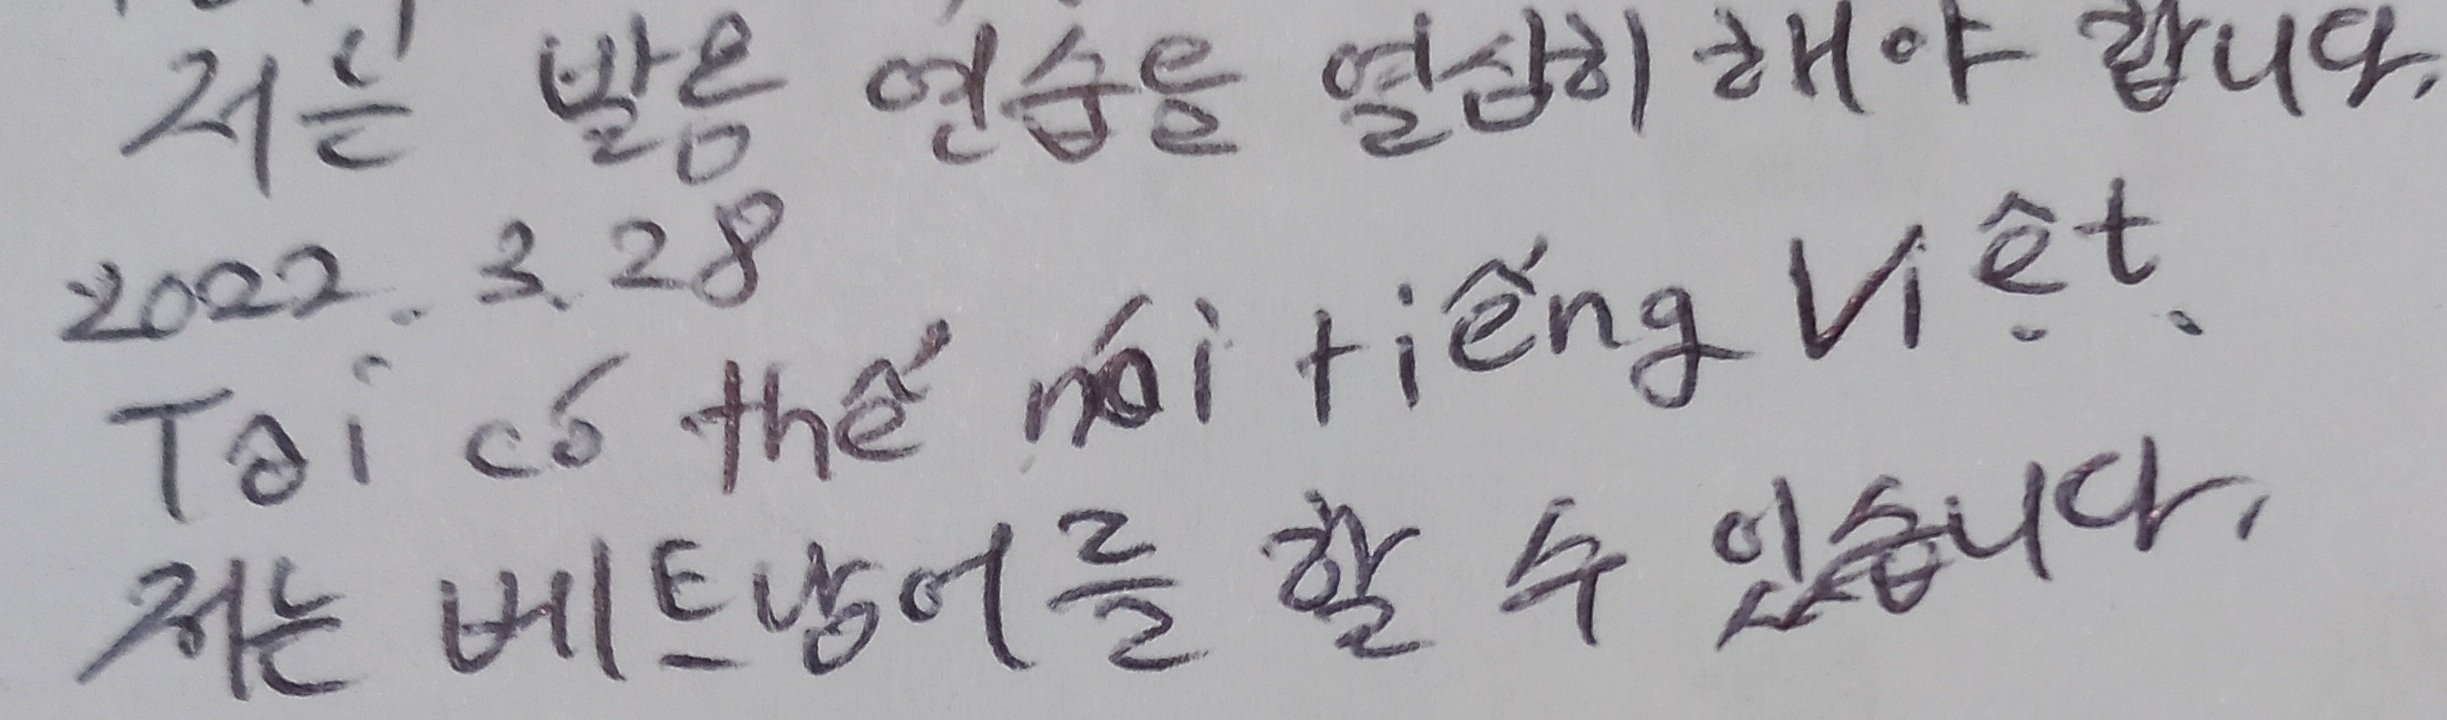 저는 발음 연습을 열심히 해야 합니다.
2022. 3. 28
Tôi có thế nói tiếng Việt.
저는 베트남어를 할 수 있습니다.